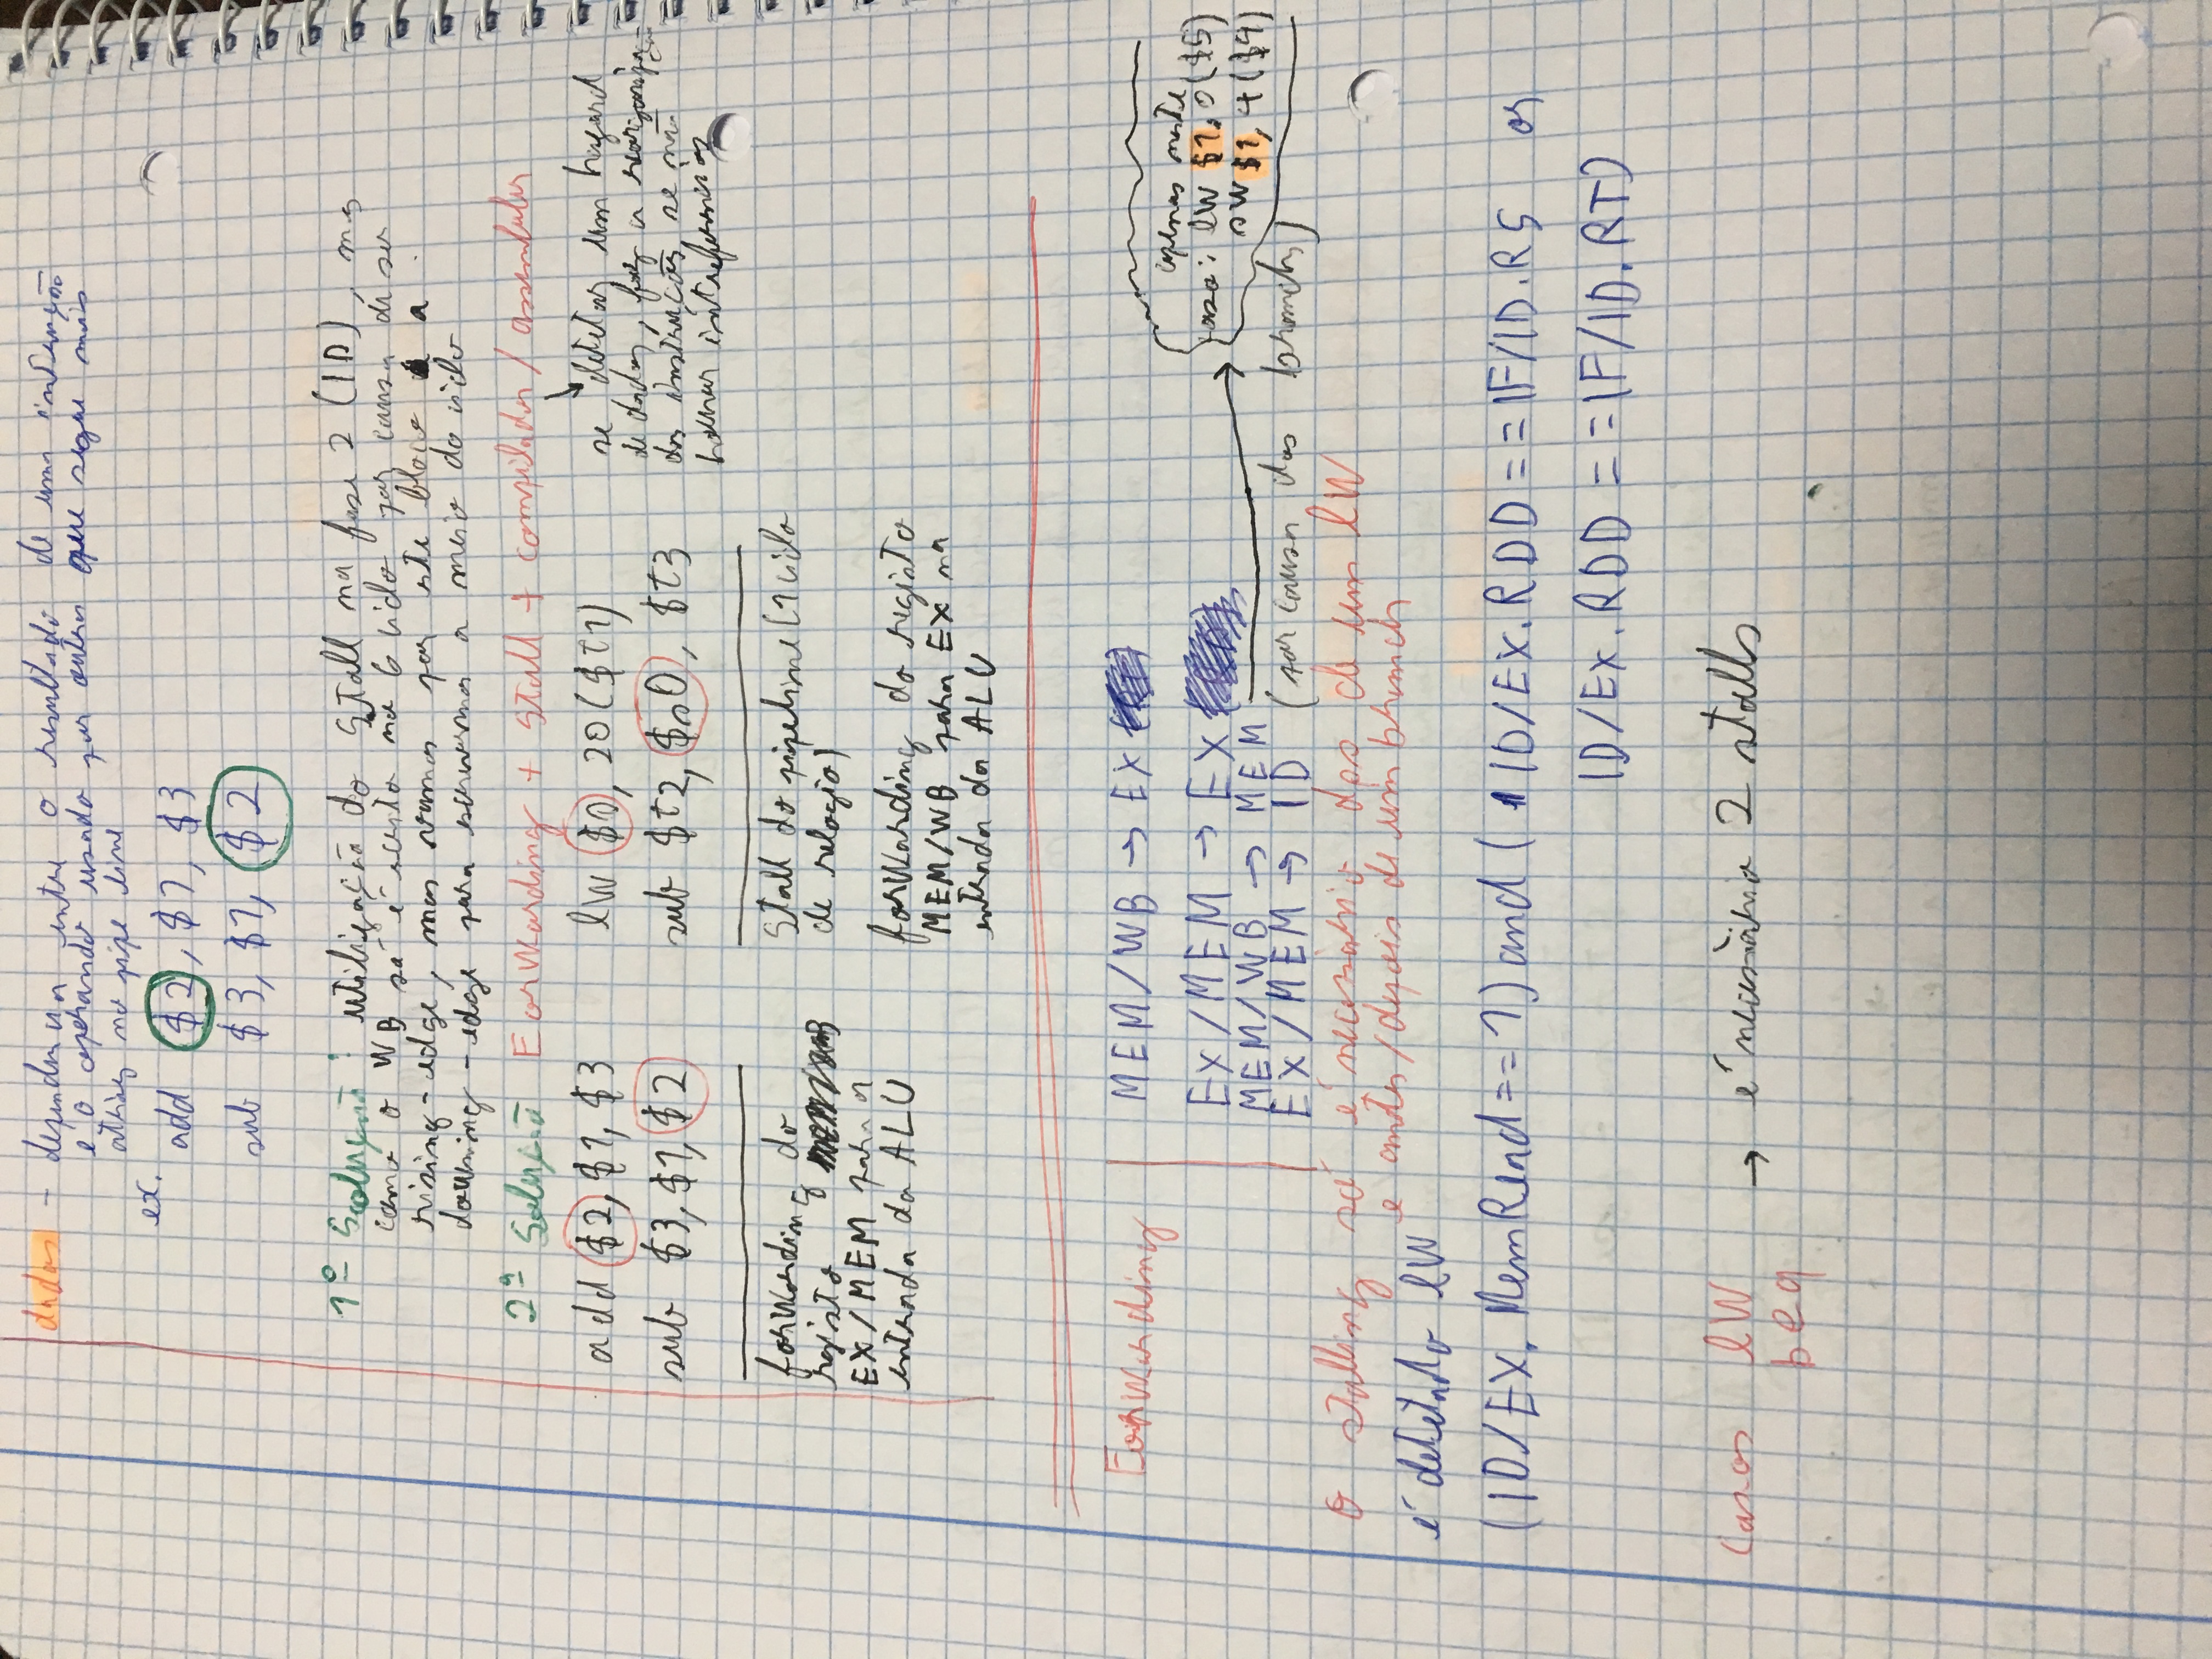 dados - dependencia entre o resultado de uma instrução
e o operando usado por outra que segue mais
atrás no pipe line
ex.
add $2, $1, $3
sub $3, $1, $2
1º Solução: utilização do Stall na fase 2 (ID), mas
como o WB só é escrito no 6 ciclo por causa de ser
rising-edge, mas vamos por este bloco a
downing-edge para escrevermos a meio do ciclo
2ª Solução Forwarding + Stall + compilador / assembler
add $2, $1, $3
sub $3, $1, $2
forwarding do
registo
EX/MEM para a
entrada da ALU
lw $s0, 20($t1)
sub $t2, $s0, $t3
Stall do pipeline (1 ciclo
de relogio)
forwarding do registo
MEM/WB para EX na
entrada da ALU
se detetar um hazard
de dados, faz a reorganização
das instruções, se não
houver
Forwarding
MEM/WB → EX
EX/MEM → EX
MEM/WB → MEM
EX/MEM → ID (por causa dos branch)
apenas neste
caso: lw $1, 0($5)
sw $1, 4($4)
O stalling só é necessário dps de um lW
e antes/depois de um branch
é detetado lW
(ID/EX.MemRead==1) and (ID/EX.RDD==IF/ID.RS or
ID/EX.RDD==IF/ID.RT)
Casos lW → é necessário 2 stalls
beq